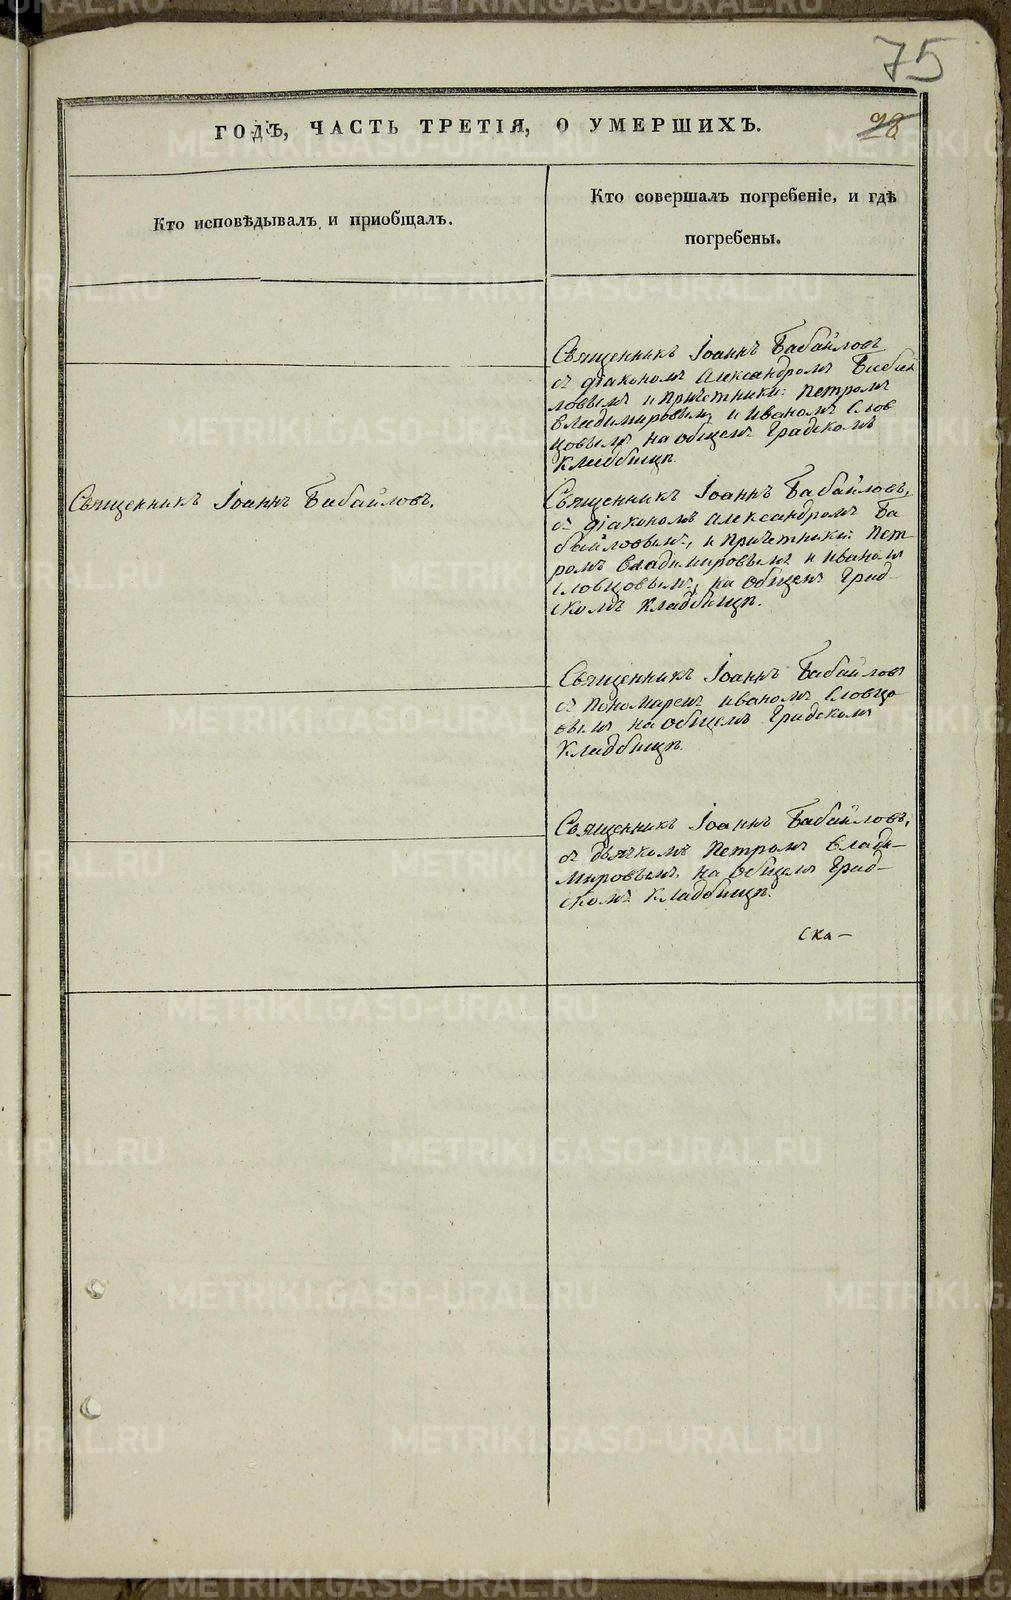 75
ГОДЪ, ЧАСТЬ ТРЕТІЯ, О УМЕРШИХЪ.
78
Кто исповѣдывалъ и приобщалъ.
Кто совершалъ погребеніе, и гдѣ
погребены.
Священникъ Іоаннъ Бабайловъ
съ діакономъ Александромъ Бабай
ловымъ и причетники: Петромъ
Владимировым, и Иваномъ Слов
цовымъ на общемъ Градскомъ
Кладбищѣ.
Священникъ Іоаннъ Бабайловъ.
Священникъ Іоаннъ Бабайловъ,
съ діакономъ Александромъ Ба
байловымъ, и причетники: Пет-
ромъ Владимировымъ и Иваномъ
Словцовымъ, на общемъ Град-
скомъ Кладбищѣ.
Священникъ Іоаннъ Бабайловъ
съ пономаремъ Иваномъ Словцо
вымъ на общемъ Градскомъ
Кладбищѣ.
Священникъ Іоаннъ Бабайловъ,
съ дьячкомъ Петромъ Влади-
мировымъ, на общемъ Град-
скомъ Кладбищѣ.
Ска-
METRIKI.GASO-URAL.RU